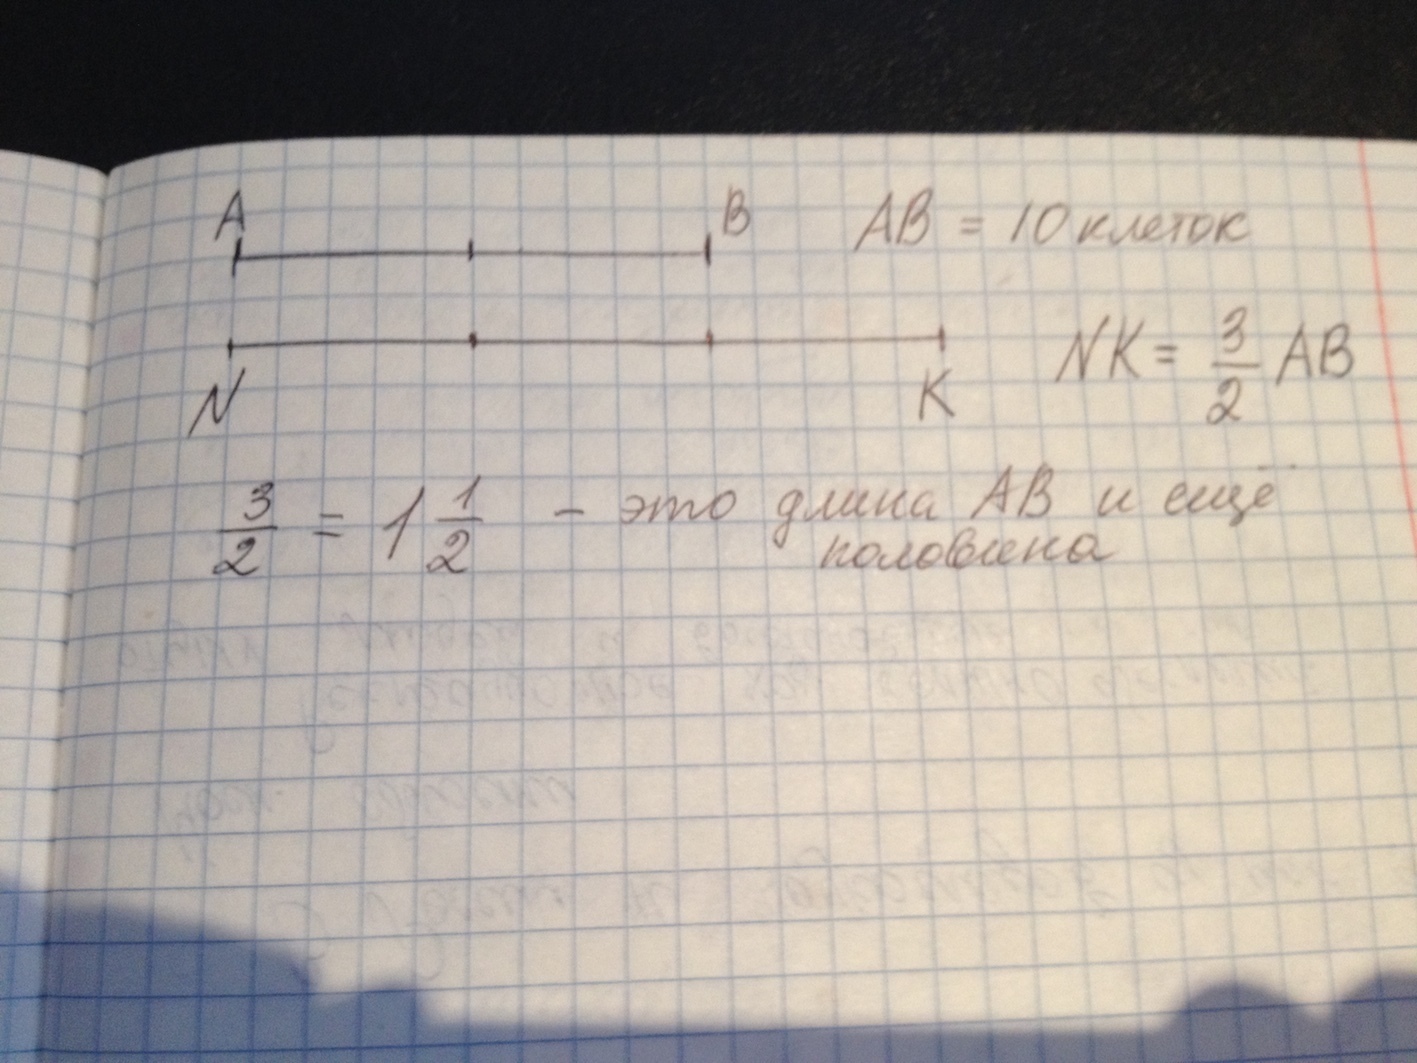 A B AB = 10 клеток
N K NK = 3/2 AB
3/2 = 1 1/2 - это длина AB и ещё
половина